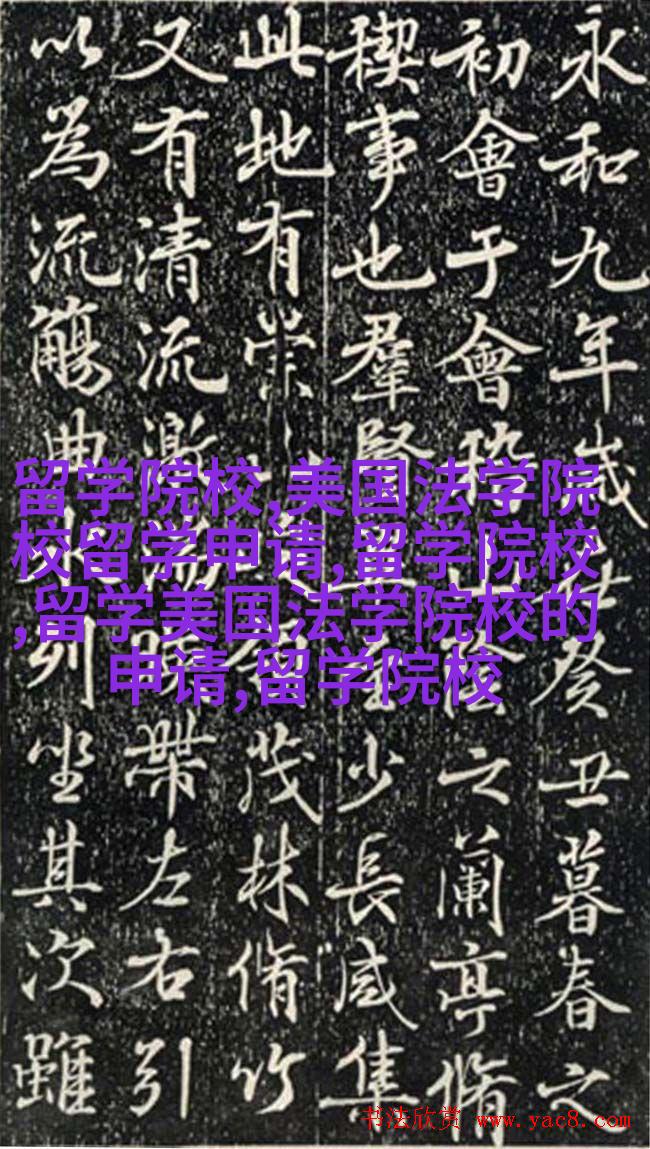 永和九年歲癸丑暮春之
初會于會之蘭亭脩
稧事也羣賢少長咸集
此地有崇茂林脩竹
又有清流激帶左右引
以為流觴曲列坐其次雖
留学院校,美国法学院
校留学申请,留学院校
,留学美国法学院校的
申请,留学院校
书法欣赏 www.yac8.com